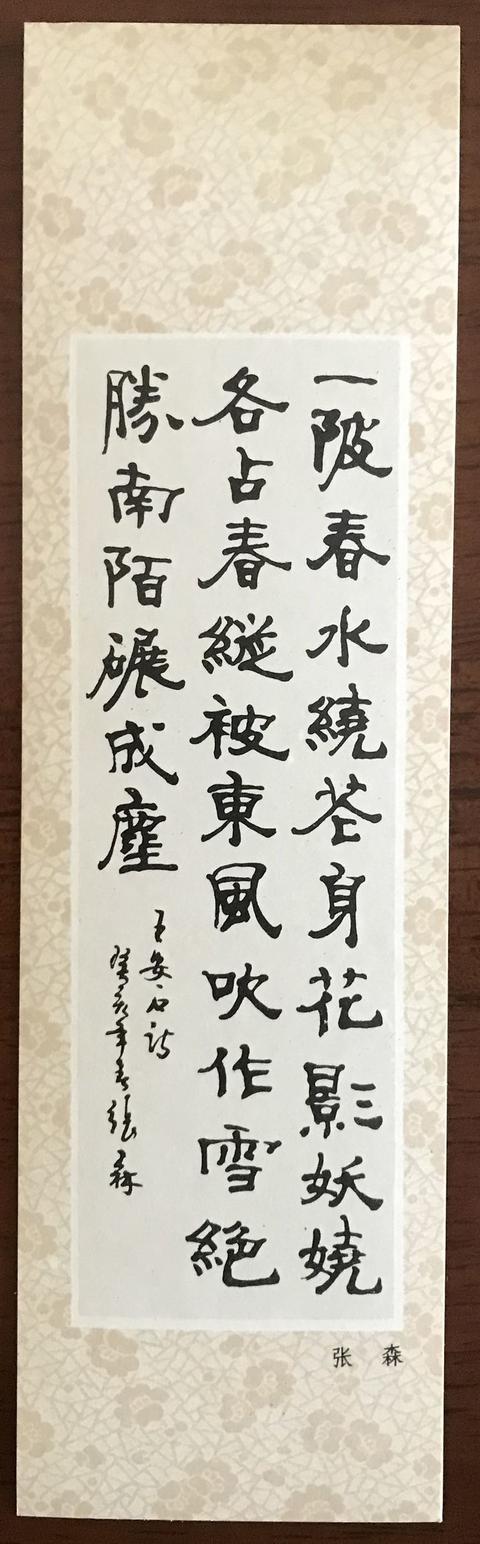 一陂春水繞花身花影妖嬈
各占春縱被東風吹作雪絕
勝南陌碾成塵
王安石詩
癸亥年春張森
张森